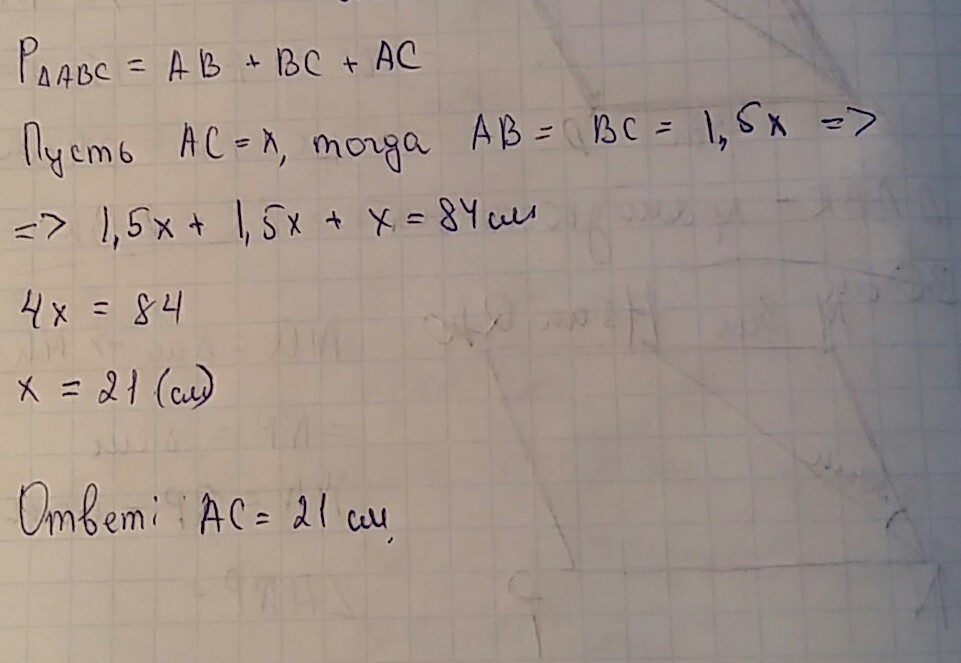 P△ABC = AB + BC + AC
Пусть AC = x, тогда AB = BC = 1,5x =>
=> 1,5x + 1,5x + x = 84 см
4x = 84
x = 21 (см)
Ответ: AC = 21 см.